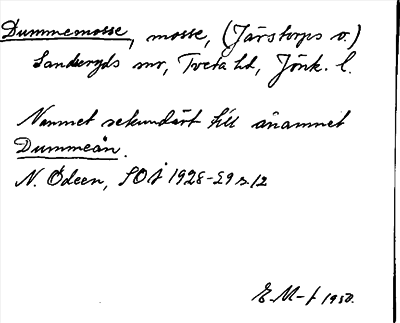 Dummemosse, mosse, (Järstorps v.)
Sanderyds mr, Tveta hd, Jönk. l.
Namnet sekundärt till ånamnet
Dummeån.
N. Ödeen, SOÅ 1928-29 s. 12
E. M-t 1950.